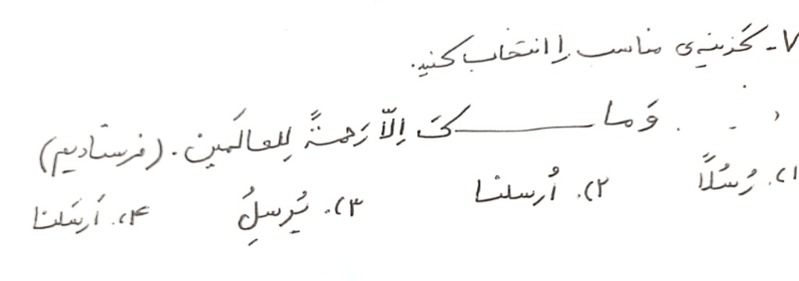 ۷- گزینه‌ی مناسب را انتخاب کنید.
وَما ــــــــ کَ اِلّا رَحمةً لِلعالَمین. (فرستادیم)
۱). رُسُلاً ۲). اُرسلنا ۳). یُرسِلُ ۴). اَرسَلنا